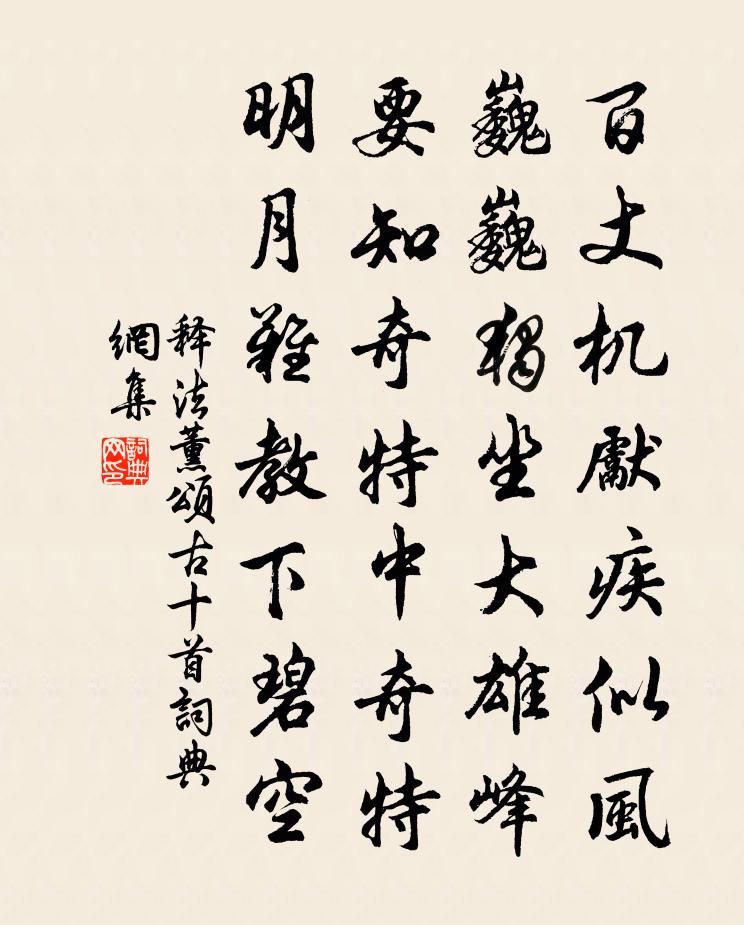 百丈机獻疾似風
巍巍獨坐大雄峰
要知奇特中奇特
明月難教下碧空
释法薰頌古十首詞典
網集
詞典
网印